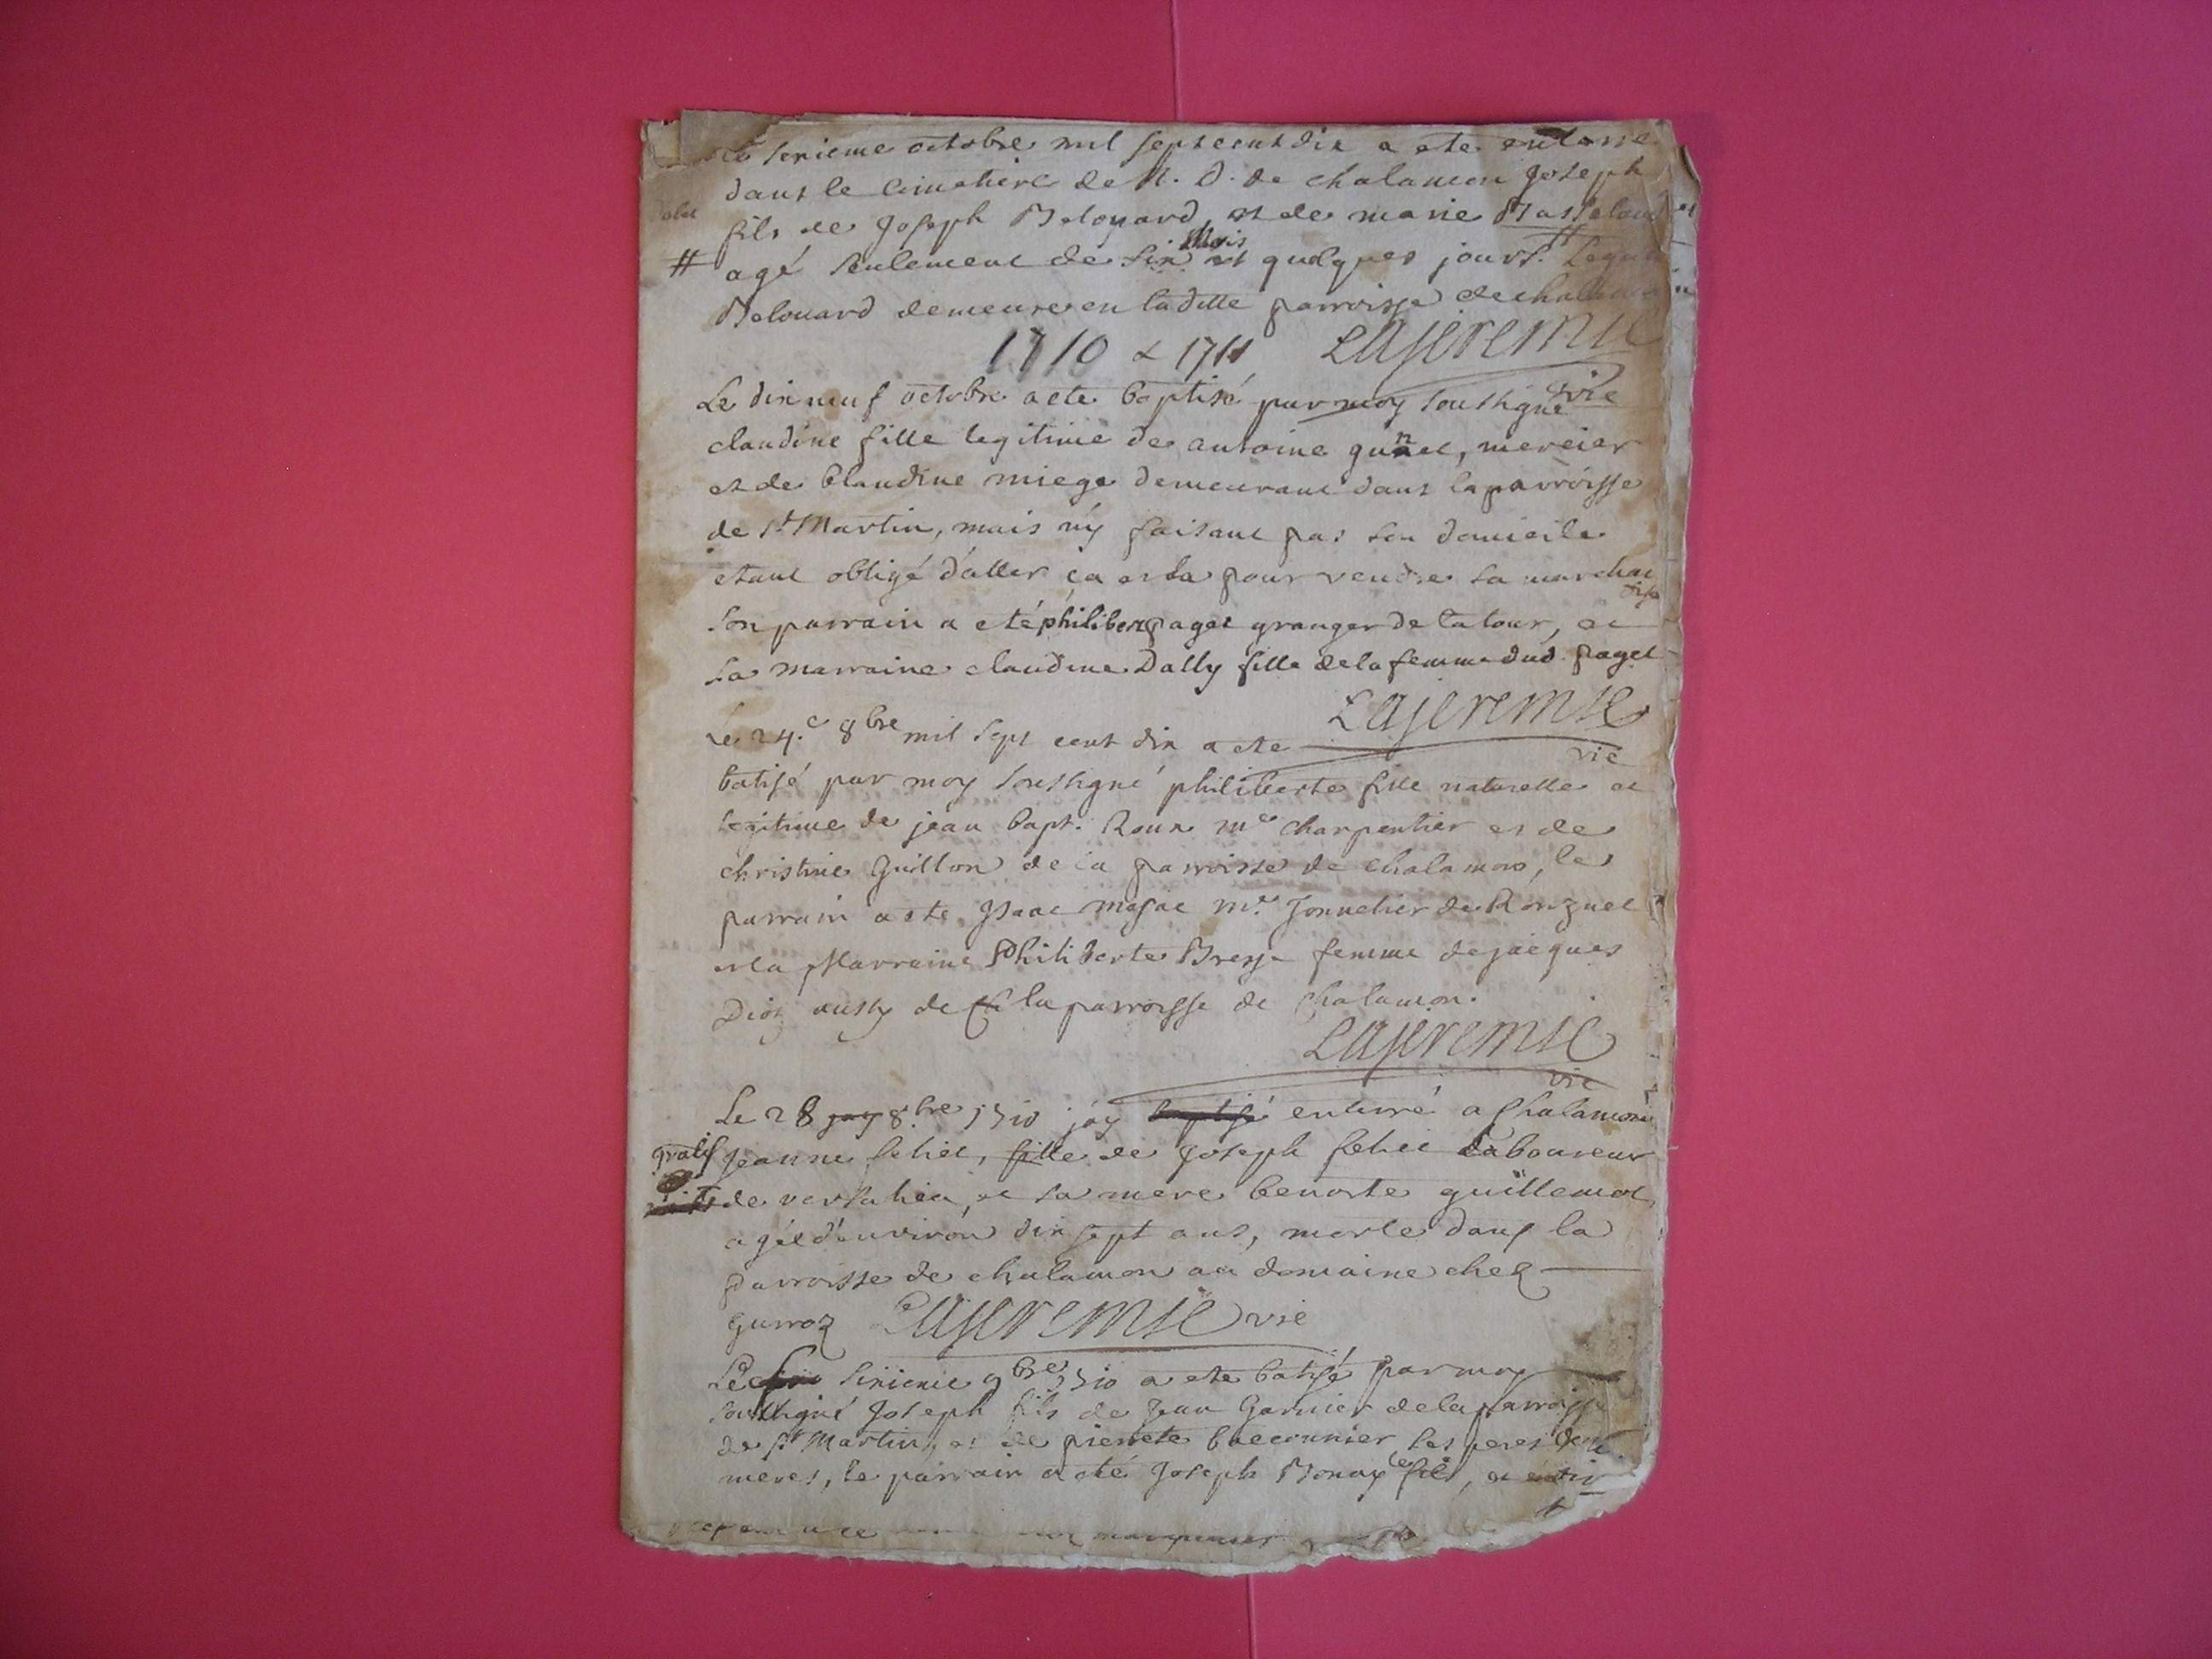 Le seizieme octobre mil sept cent dix a ete enterré
dans le Cimetiere de N. D. de chalamon Joseph
fils de Joseph Belouard, et de marie
# agé seulement de six mois et quelques jours. Lequel
Belouard demeure en laditte parroisse de
1710 & 1711 Lajeremie
vie
Le dix neuf octobre a ete baptisé par moy soussigné
claudine fille legitime de antoine mercier
et de Claudine miege demeurant dans la parroisse
de St. Martin, mais n'y faisant pas son domicile
etant obligé d'aller ça et la pour vendre sa marchan
dise
son parrain a eté philibert paget granger de la tour, et
sa marraine claudine Dally fille de la femme dud. paget
Lajeremie
vie
Le 24.e 8bre mil sept cent dix a ete
batisé par moy soussigné philiberte fille naturelle et
legitime de jean bapt. Roux me charpentier et de
christine Guillon de la parroisse de chalamon, le
parrain a ete Isaac me. Tonnelier de Ronzuel
et la Marraine Philiberte Bresse femme de jacques
aussy de la parroisse de Chalamon.
Lajeremie
vie
Le 28 8.bre 1710 j'ay enterré a Chalamon
gratis Jeanne feliet, fille de Joseph feliet Laboureur
de versalieu, et sa mere benoite guillemot
agée d'environ dix sept ans, morte dans la
parroisse de chalamon au domaine chez
Lajeremie vie
Le sixieme 9bre 1710 a ete batisé par moy
soussigné Joseph fils de Jean Garnier de la parroisse
de St Martin, et de pierrete ses peres et
meres, le parrain a eté Joseph Monay le fils, et